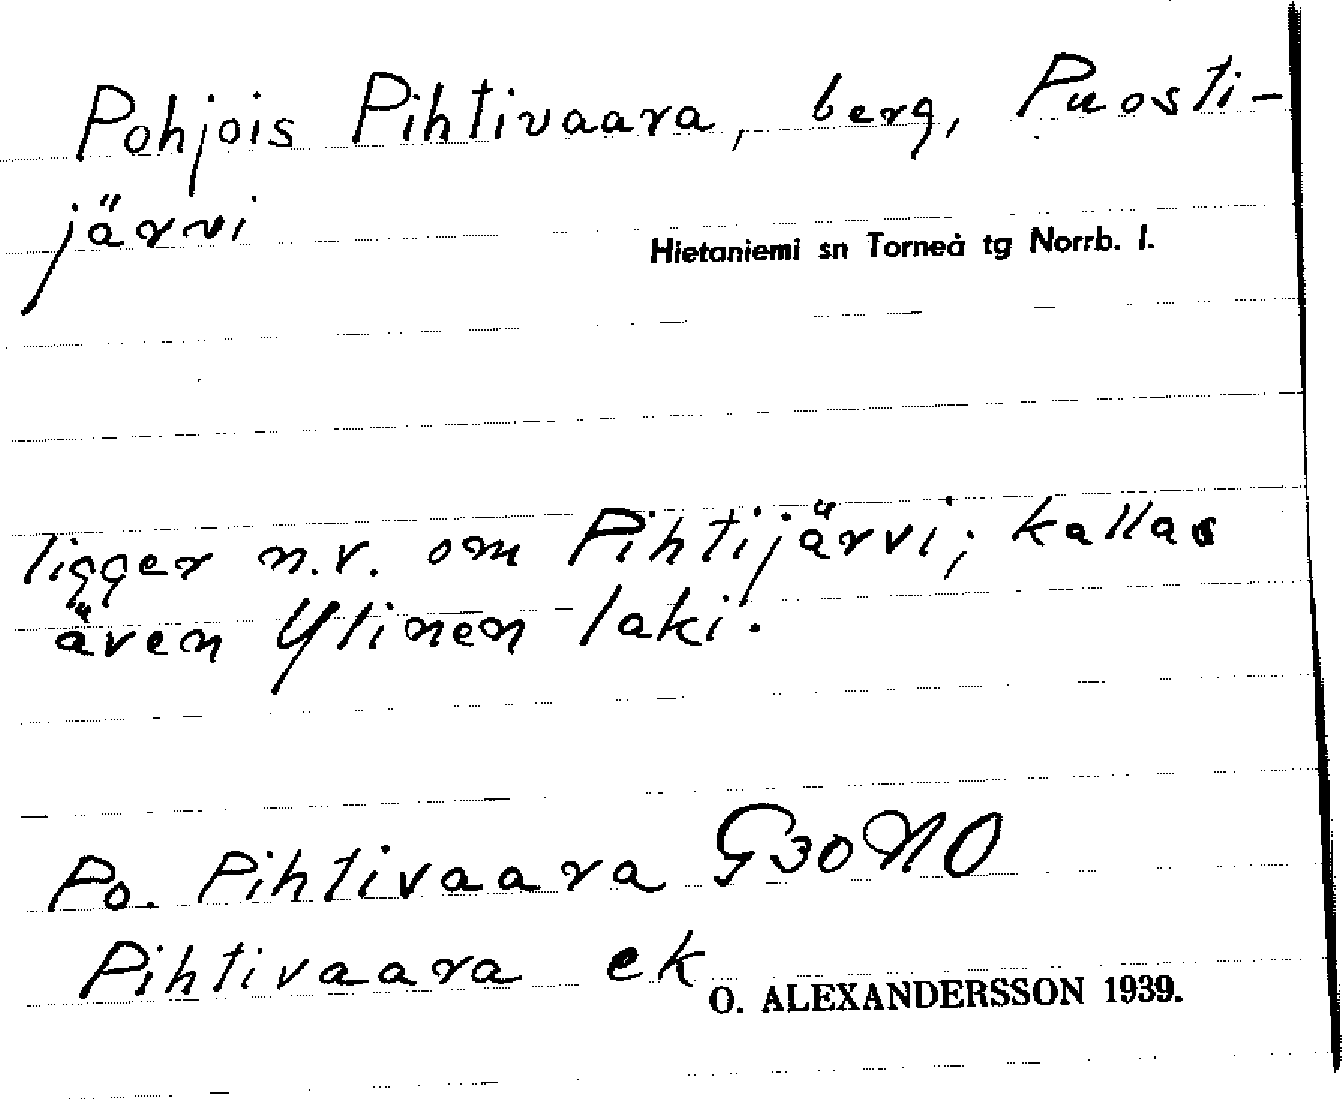 Pohjois Pihtivaara, berg, Puosti-
järvi
Hietaniemi sn Torneå tg Norrb. l.
ligger n.v. om Pihtijärvi; kallas
även Ylinen laki.
Po. Pihtivaara G30NO
Pihtivaara ek
O. ALEXANDERSSON 1939.